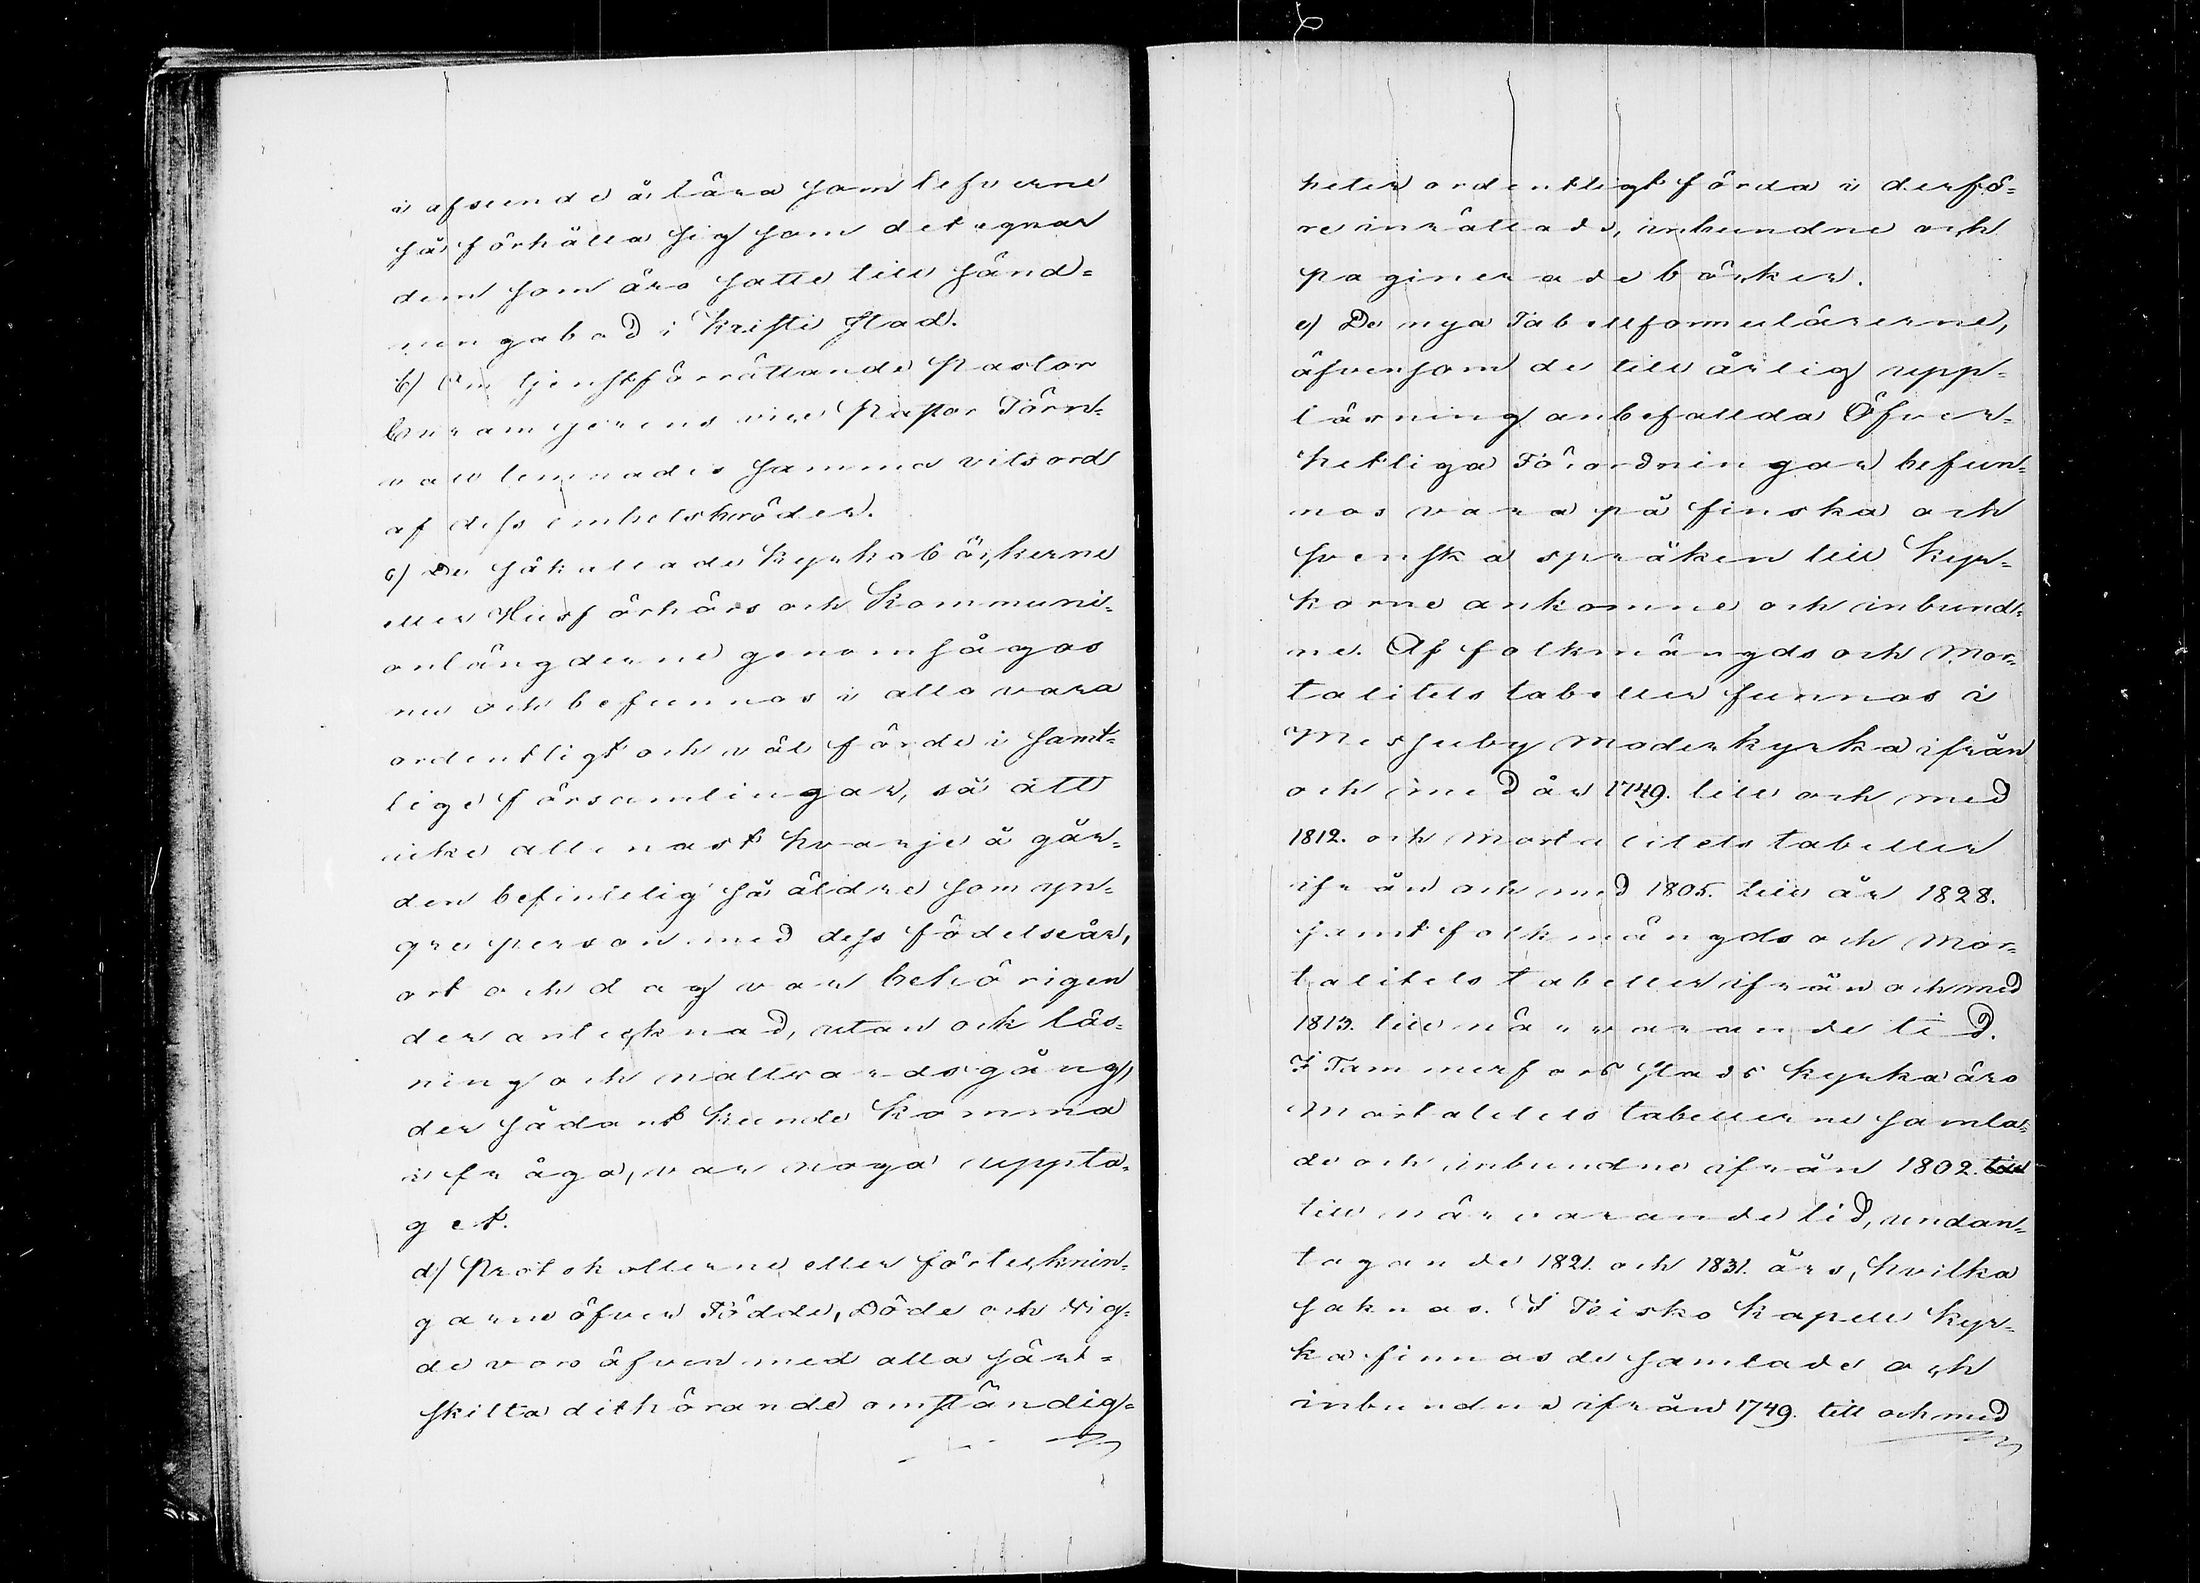 i afseende å lära som lefverne
så förhålla sig som det egnar
dem som äro satte till sänd-
ningabod i Kristi stad.
b) Om tjenstförrättande Pastor
 vice Pastor Törn-
 lemnades samma vitsord
af dess embetsbröder.
c) De såkallade Kyrkoböckerne
eller Husförhörs och Kommuni-
onlängderne genomsågos
nu och befunnos i allo vara
ordentligt och väl förde i samt-
lige församlingar, så att
icke allenast hvarje å går-
den befintelig så äldre som yn-
gre person med dess födelseår,
ort och dag var behörigen
der antecknad, utan ock läs-
ning och nattvardsgång,
der sådant kunde komma
i fråga, var noga uppta-
get.
d) Protokollerne eller förtecknin-
garne öfver Födde, Döde och Vig-
de voro äfven med alla sär-
skilta dithörande omständig-
heter ordentligt förda i derfö-
re inrättade, inbundne och
paginerade böcker.
e) De nya Tabellformulärerne,
äfvensom de till årlig upp-
läsning anbefallda Öfver-
hetliga Förordningar befun-
nos vara på finska och
svenska språken till Kyr-
korne ankomne och inbund-
ne. Af folkmängds och Mor-
talitets tabeller funnos i
Messuby Moderkyrka ifrån
och med år 1749. till och med
1812. och Mortalitets tabeller
ifrån och med 1805. till år 1828.
samt folkmängds och Mor-
talitets tabeller ifrån och med
1813. till närvarande tid.
I Tammerfors stads kyrka äro
Mortalitets tabellerne samla-
de och inbundne ifrån 1802. till
till närvarande tid, undan-
tagande 1821. och 1831. års, hvilka
saknas. I Teisko Kapell Kyr-
ka finnas de samlade och
inbundne ifrån 1749. till och med